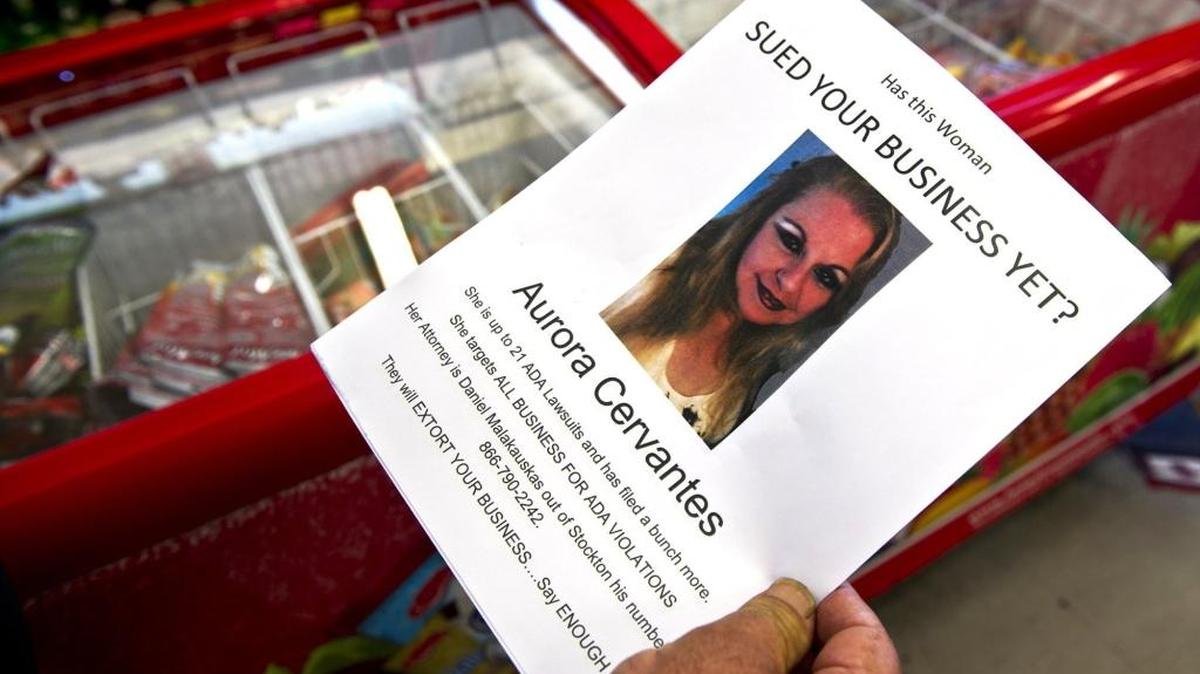 Has this Woman
SUED YOUR BUSINESS YET?
Aurora Cervantes
She is up to 21 ADA Lawsuits and has filed a bunch more.
She targets ALL BUSINESS FOR ADA VIOLATIONS
Her Attorney is Daniel Malakauskas out of Stockton his numbe
866-790-2242.
They will EXTORT YOUR BUSINESS....Say ENOUGH